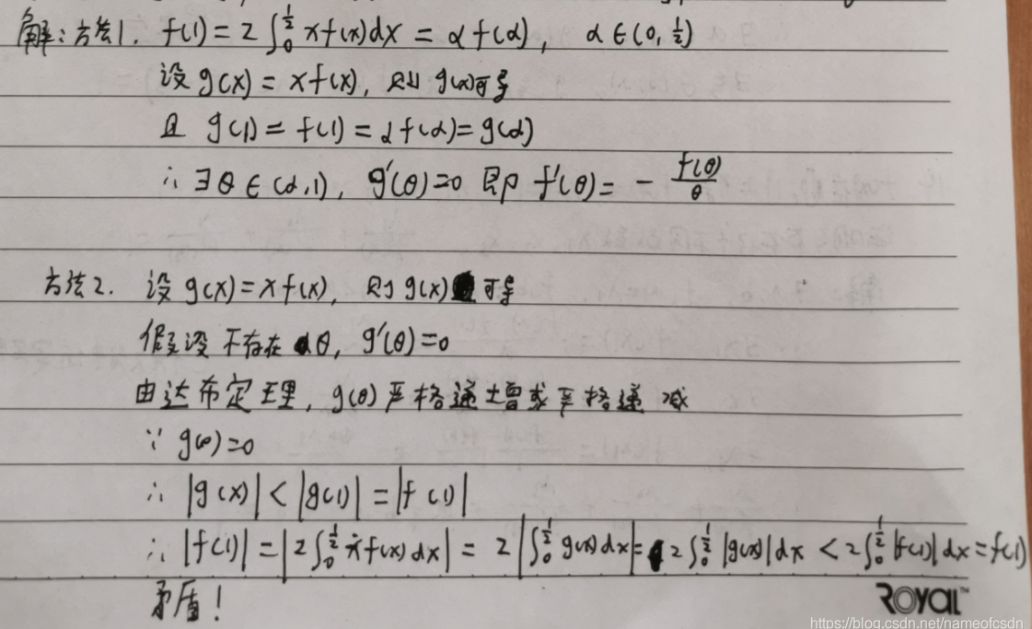 解:方法1. f(1)=2∫₀^{1/2} xf(x)dx = αf(α), α∈(0,1/2)
设g(x)=xf(x), 则g(x)可导
且 g(1)=f(1)=αf(α)=g(α)
∴∃θ∈(α,1), g'(θ)=0 即 f'(θ)= - f(θ)/θ
方法2. 设g(x)=xf(x), 则g(x)可导
假设不存在θ, g'(θ)=0
由达布定理, g(θ)严格递增或严格递减
∵ g(0)=0
∴ |g(x)| < |g(1)| = |f(1)|
∴ |f(1)| = |2∫₀^{1/2} xf(x)dx| = 2|∫₀^{1/2} g(x)dx| = 2∫₀^{1/2} |g(x)|dx < 2∫₀^{1/2} |f(1)|dx = f(1)
矛盾!
ROYAL™
https://blog.csdn.net/nameofcsdn